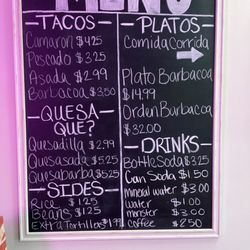 MENU
TACOS
Camaron $4.25
Pescado $3.25
Asada $2.99
Barbacoa $3.50
QUESA-
QUE?
Quesadilla $2.99
Quesasada $5.25
Quesabarba $5.25
SIDES
Rice $1.25
Beans $1.25
Extra Tortillas $1.99
PLATOS
Comida Corrida
→
Plato Barbacoa
$14.99
Orden Barbacoa
$32.00
DRINKS
Bottle Soda $3.25
Can Soda $1.50
Mineral water $3.00
water $1.00
monster $3.00
coffee $2.50